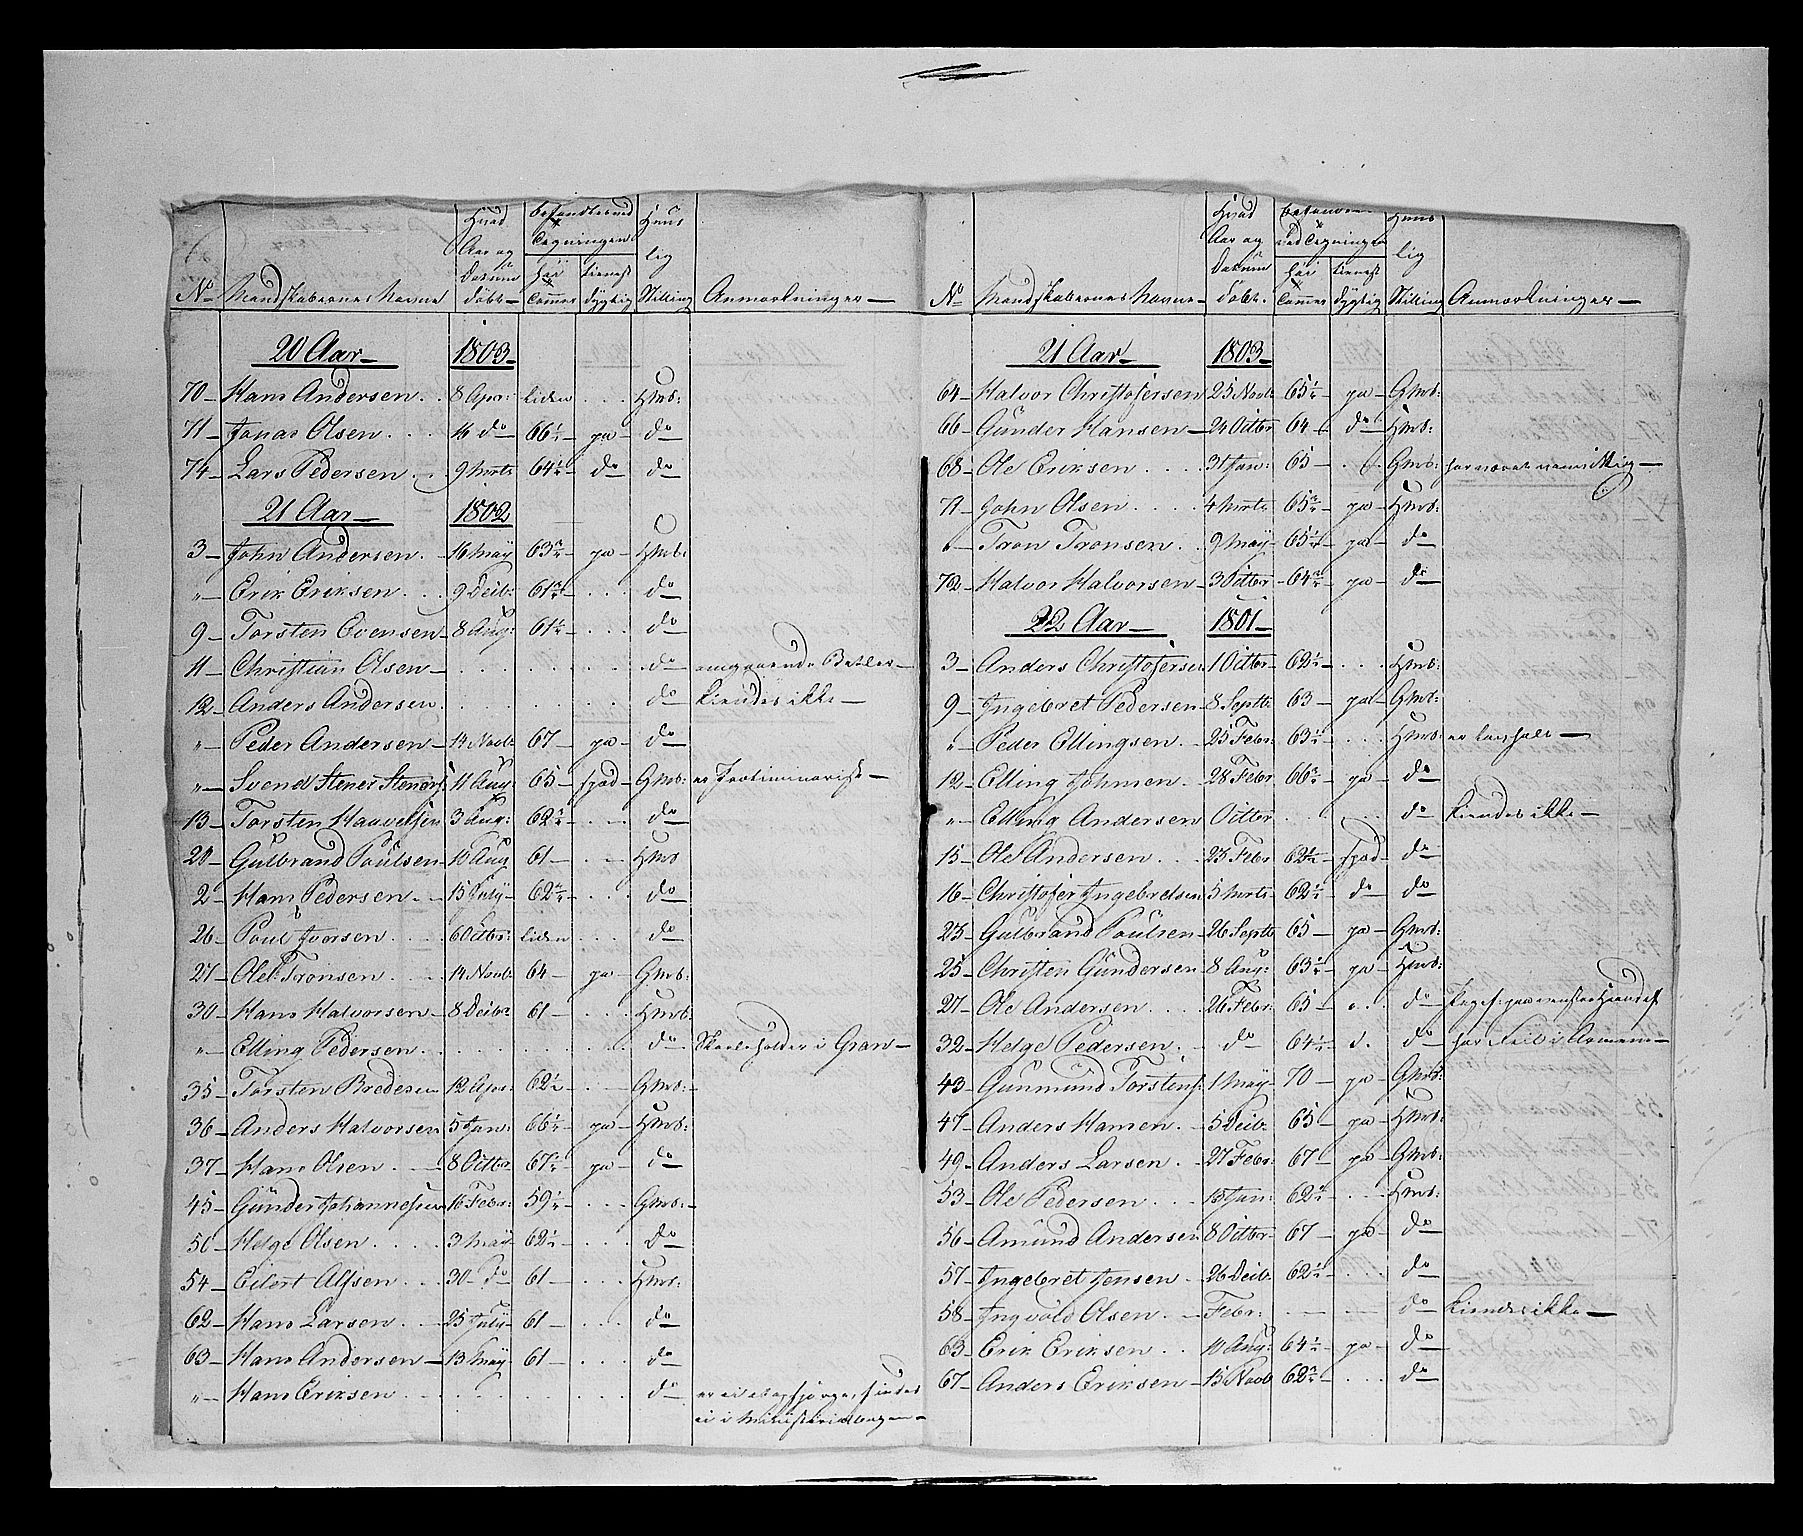 No Mandskabernes Navne Hvad Aar og Datum døbt Befandtes ved Tegningen Høi Tommer tienest dygtig Huus lig Stilling Anmærkninger
20 Aar 1803
70 Hans Andersen 8 Apr: liden Hmd:
71 Jonas Olsen 16 do 66½ ja do
74 Lars Pedersen 9 Mrts 64½ do do
21 Aar 1802
3 John Andersen 16 May 63 ja Hmd:
" Erik Eriksen 9 Decb: 61 do
9 Torsten Evensen 8 Aug: 61½ do
11 Christian Olsen do omgaaende Betler
12 Anders Andersen do kiendes ikke
" Peder Andersen 14 Novb: 67 ja do
" Svend Stener Steners: 11 Aug: 65 spad Gmd:
13 Torsten Haavelsen 3 Aug: 62½ do
20 Gulbrand Poulsen 10 Aug 61 Hmd
2 Hans Pedersen 15 July 62 do
26 Poul Iversen 6 Octbr: liden do
27 Ole Tronsen 14 Novb: 64 ja Gmd:
30 Hans Halvorsen 8 Decb: 61 Hmd:
" Elling Pedersen do Skoleholder i Gran
35 Torsten Bredesen 12 Apr: 62½ Gmd:
36 Anders Halvorsen 5 Jan: 66½ ja Hmd:
37 Hans Olsen 8 Octbr 67 ja do
45 Gunder Johannesen 16 Febr: 59½ Gmd:
50 Helge Olsen 3 May 62½ do
54 Eilert Alfsen 30 do 61 Hmd:
62 Hans Larsen 25 July 61 do
63 Hans Andersen 13 May 61 do
" Hans Eriksen do
ei i Ministerialbogen
No Mandskabernes Navne Hvad Aar og Datum døbt. ved Tegningen Høi Tommer tienest dygtig Huus lig Stilling Anmærkninger
21 Aar 1803
64 Halvor Christofersen 25 Novb: 65½ ja Gmd:
66 Gunder Hansen 24 Octbr 64 do Hmd:
68 Ole Eriksen 31 Jan: 65 Gmd: har været vanvittig
71 John Olsen 4 Mrts 65 ja Hmd:
" Tron Tronsen 9 May 65½ ja do
72 Halvor Halvorsen 3 Octbr 64 ja do
22 Aar 1801
3 Anders Christofersen 1 Octbr 62½ Hmd:
9 Ingebret Pedersen 8 Septb: 63 ja Gmd:
" Peder Ellingsen 25 Febr: 63½ Hmd:
12 Elling Johnsen 28 Febr 66 ja do
" Elling Andersen Octbr do kiendes ikke
15 Ole Andersen 23 Febr 62½ spad do
16 Christofer Ingebretsen 5 Mrts 62½ do do
23 Gulbrand Poulsen 26 Septb: 65 ja Gmd:
25 Christen Gundersen 8 Aug: 63½ ja Hmd:
27 Ole Andersen 26 Febr: 65 do
32 Helge Pedersen do 64½ do har Feil i Armene
43 Gunmund Torstens: 1 May 70 ja Gmd:
47 Anders Hansen 5 Decb: 65 ja Hmd:
49 Anders Larsen 27 Febr: 67 ja Gmd:
53 Ole Pedersen 15 Jan: 62 Hmd:
56 Amund Andersen 8 Octbr 67 ja do
57 Ingebret Jensen 26 Decb: 62½ do
58 Ingvold Olsen Febr: do kiendes ikke
63 Erik Eriksen 10 Aug: 64½ ja do
67 Anders Eriksen 15 Novb 62 do